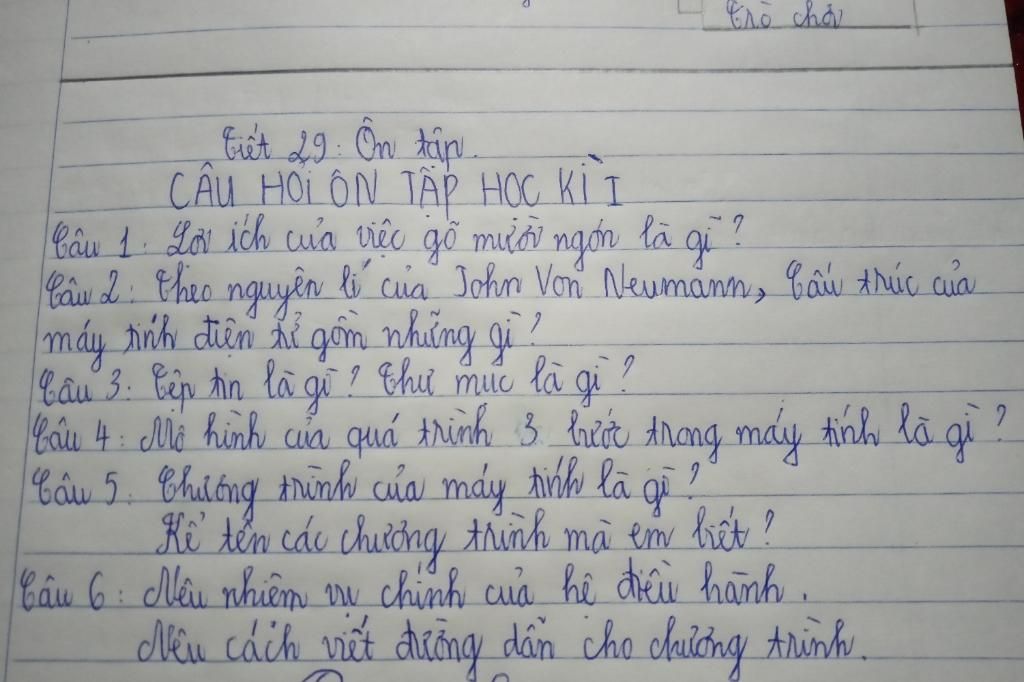 Trò chơi
Tiết 29: Ôn tập.
CÂU HỎI ÔN TẬP HỌC KÌ I
Câu 1: Lợi ích của việc gõ mười ngón là gì?
Câu 2: Theo nguyên lí của John Von Neumann, Cấu trúc của
máy tính điện tử gồm những gì?
Câu 3: Tệp tin là gì? Thư mục là gì?
Câu 4: Mô hình của quá trình 3 bước trong máy tính là gì?
Câu 5: Chương trình của máy tính là gì?
Kể tên các chương trình mà em biết?
Câu 6: Nêu nhiệm vụ chính của hệ điều hành.
Nêu cách viết đường dẫn cho chương trình.